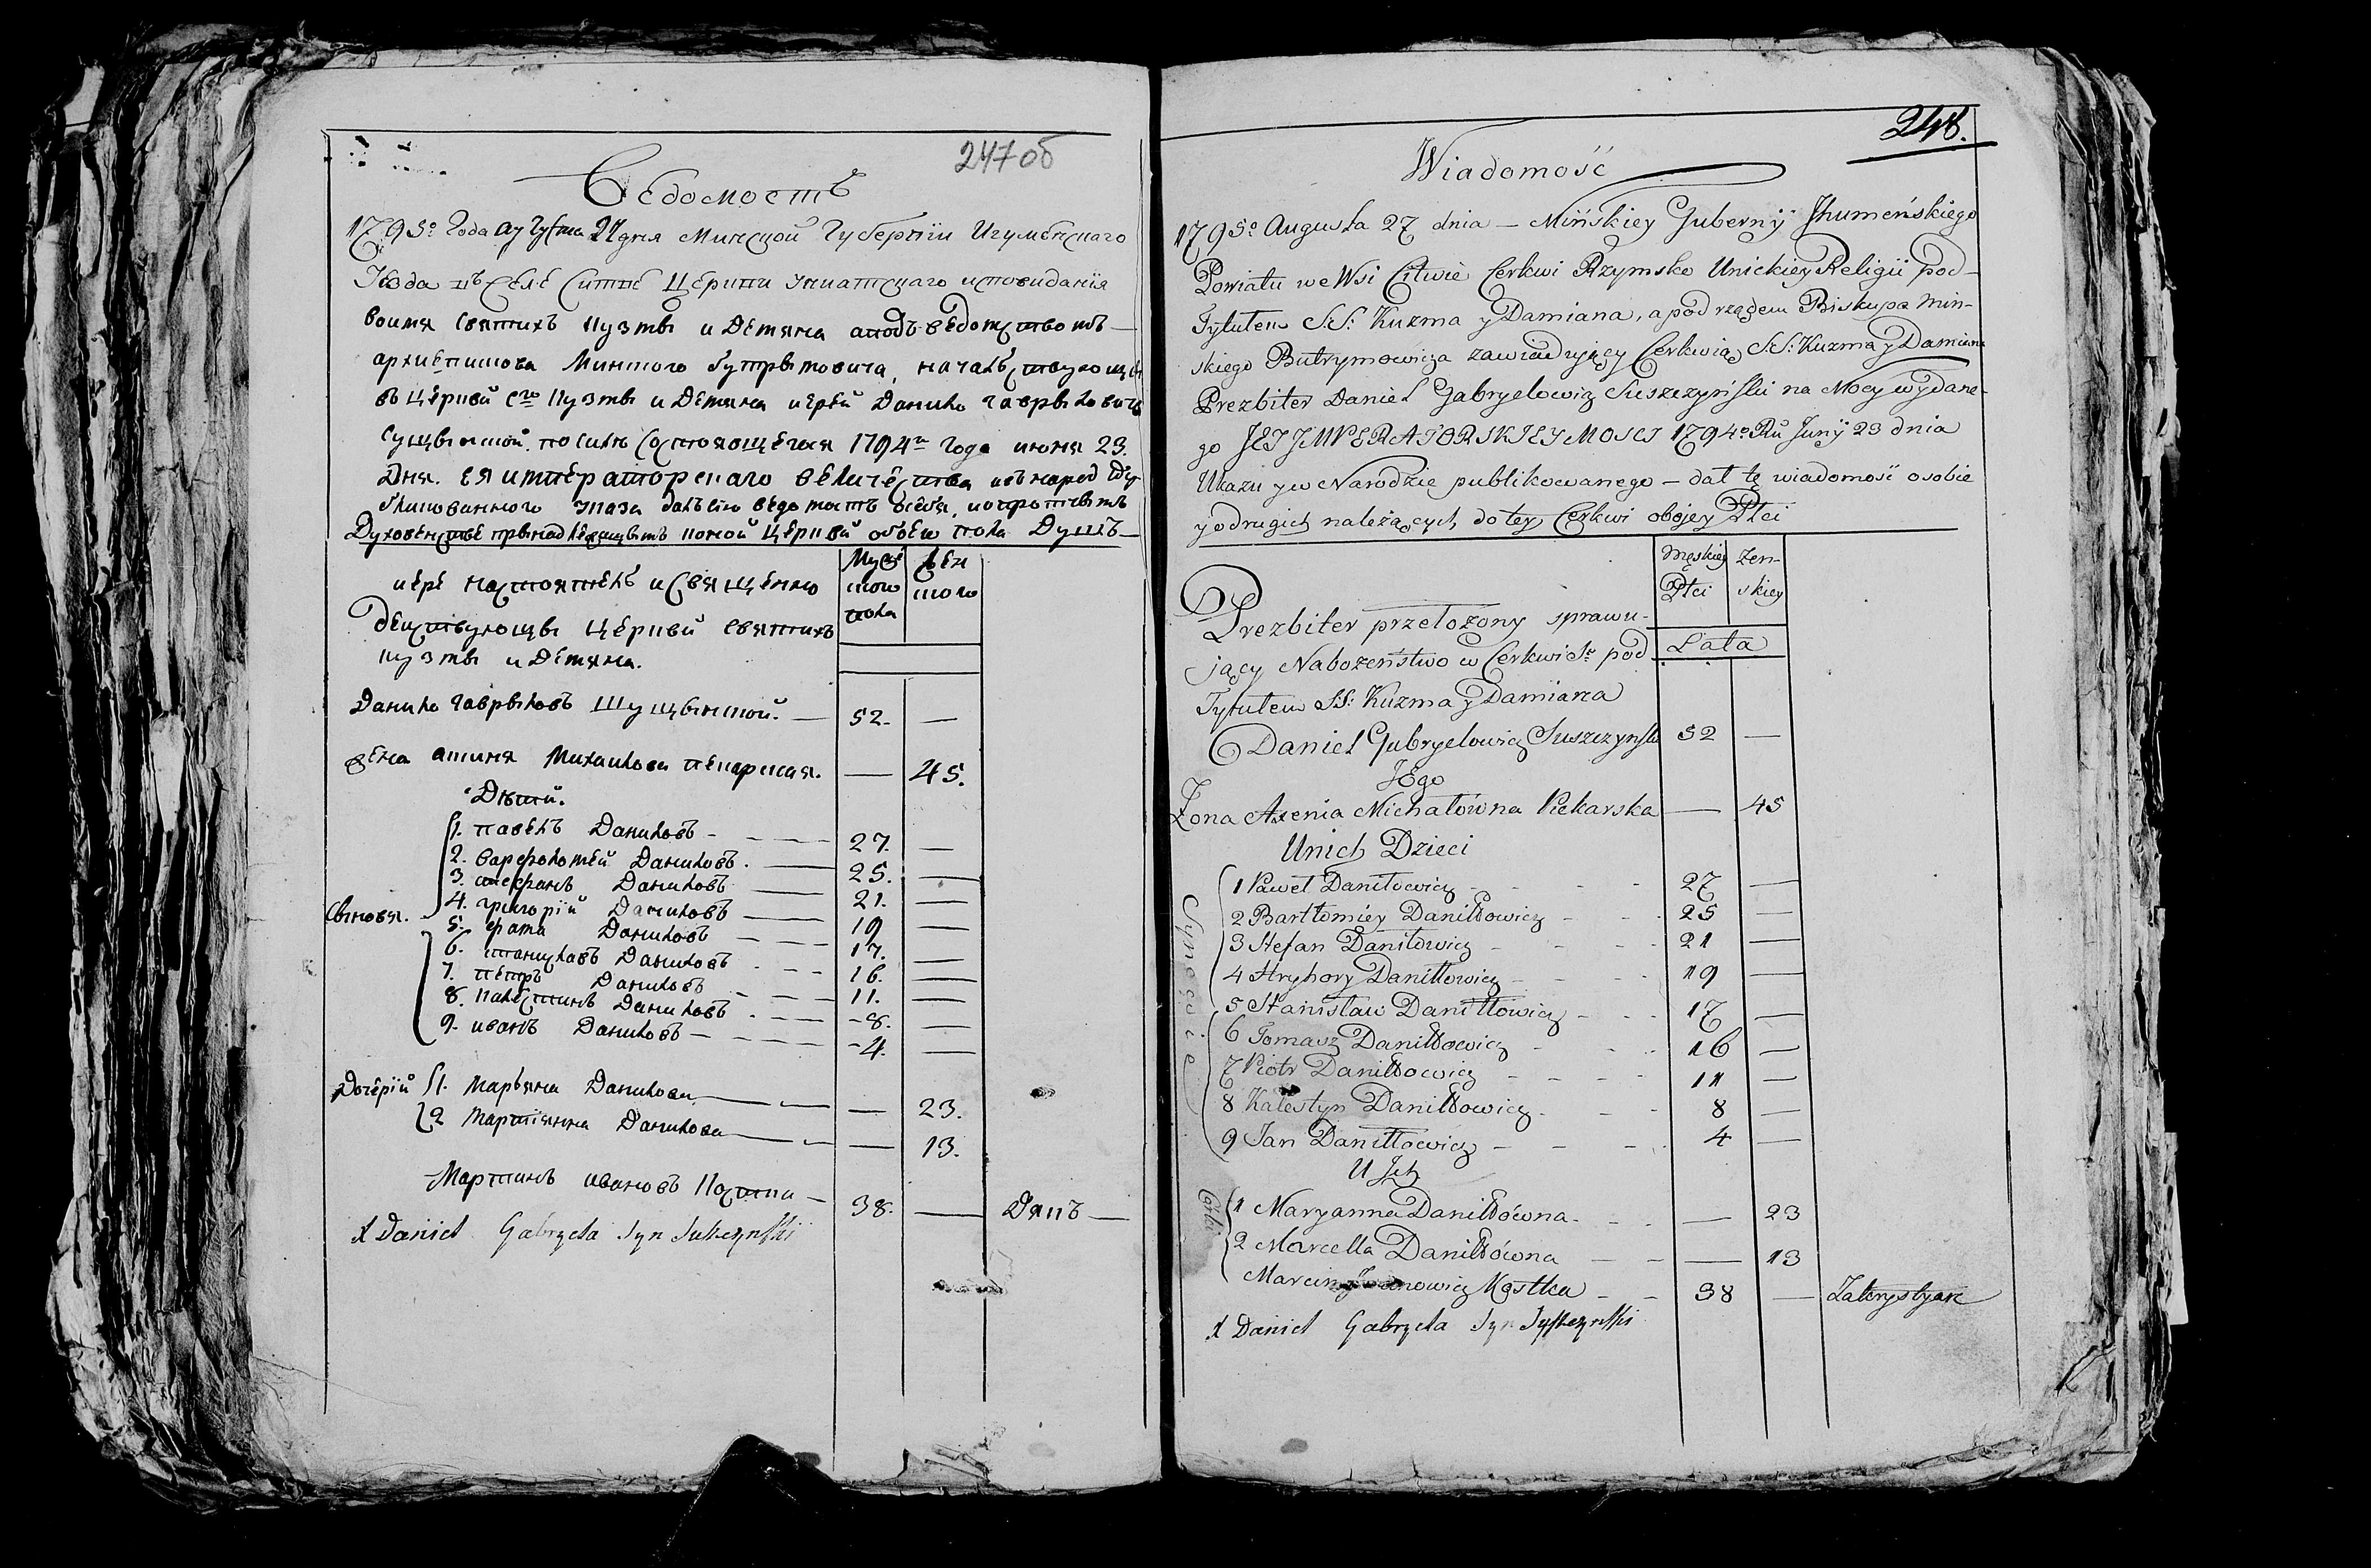 247об
Ведомость
1795го Года августа 27 дня Минской Губернїи Игуменскаго
Уезда въ Селе Ситне Церкви униатскаго исповиданїя
воимя Святихъ Кузмы и Демяна аподъ ведомством
архиепискова Минского Бутрымовича, началствующи
въ Церквй Сго Кузмы и Демяна иерей Данило Гаврылович
Сущынской. посилѣ Состоящегося 1794го Года июня 23.
Дня. ея императорскаго величества
указа далъ сию ведомость осебя,
Духовенстве прынадлежащымъ ктой Церквй обоего пола Душъ
Муже
ского
пола
жен
ского
иере настоятель и Священно
действующы Церквй Святихъ
Кузмы и Демяна.
Данило Гаврыловъ Шущынской. — 52. —
жена аксиня Михаилова пекарская. — 45.
Дѣтй.
Сыновя.
1. павелъ Даниловъ — 27. —
2. варфоломей Даниловъ. — 25. —
3. стефанъ Даниловъ — 21. —
4. григорїй Даниловъ — 19 —
5. Даниловъ — 17. —
6. станиславъ Даниловъ — 16. —
7. петръ Даниловъ — 11. —
8. калестинъ Даниловъ — 8. —
9. иванъ Даниловъ — 4. —
Дочерїй 1. Марьяна Данилова — 23.
2 Марцїянна Данилова — 13.
Мартинъ ивановъ Костка — 38. — Дякъ —
X Daniel Gabryela Syn Suszczynski
248.
Wiadomość
1795o Augusta 27 dnia — Mińskiey Gubernÿ Jhumeńskiego
Powiatu we Wsi Citwie Cerkwi Rzymsko Unickiey Religii pod
Tytułem S.S: Kuzma y Damiana, a pod rządem Biskupa Min-
skiego Butrymowicza zawiadujący Cerkwią S.S: Kuzma y Damiana
Prezbiter Daniel Gabryelowicz Suszczyński na Mocy wydane-
go JEJ JMPERATORSKIEY MOSCI 1794o Ru Junÿ 23 dnia
Ukazu y w Narodzie publikowanego — dał tę wiadomość osobie
y o drugich należących do tey Cerkwi obojey Płci
Męskiey
Płci
Żen-
skiey
Lata
Prezbiter przełożony sprawu-
jący Nabożeństwo w Cerkwi Sey pod
Tytułem SS: Kuzma y Damiana
Daniel Gabryelowicz Suszczynski 52 —
JEgo
Żona Axenia Michałówna Piekarska — 45
U nich Dzieci
Synowie
1 Paweł Daniłowicz - 27 —
2 Bartłomiey Daniłłowicz - 25 —
3 Stefan Daniłowicz - 21 —
4 Hryhory Daniłłowicz - 19 —
5 Stanisław Daniłłowicz - 17 —
6 Tomasz Daniłłowicz - 16 —
7 Piotr Daniłłowicz - 11 —
8 Kalestyn Daniłłowicz - 8 —
9 Jan Daniłłowicz - 4 —
U Jch
Córki
1 Maryanna Daniłłówna - — 23
2 Marcella Daniłłówna — — 13
Marcin Janowicz Kostka - 38 — Zakrystyan
X Daniel Gabryela Syn Syszczynski